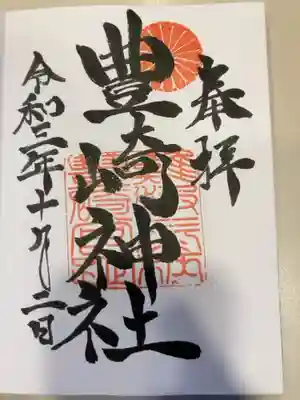 奉拝
豊崎神社
令和三年十月二日